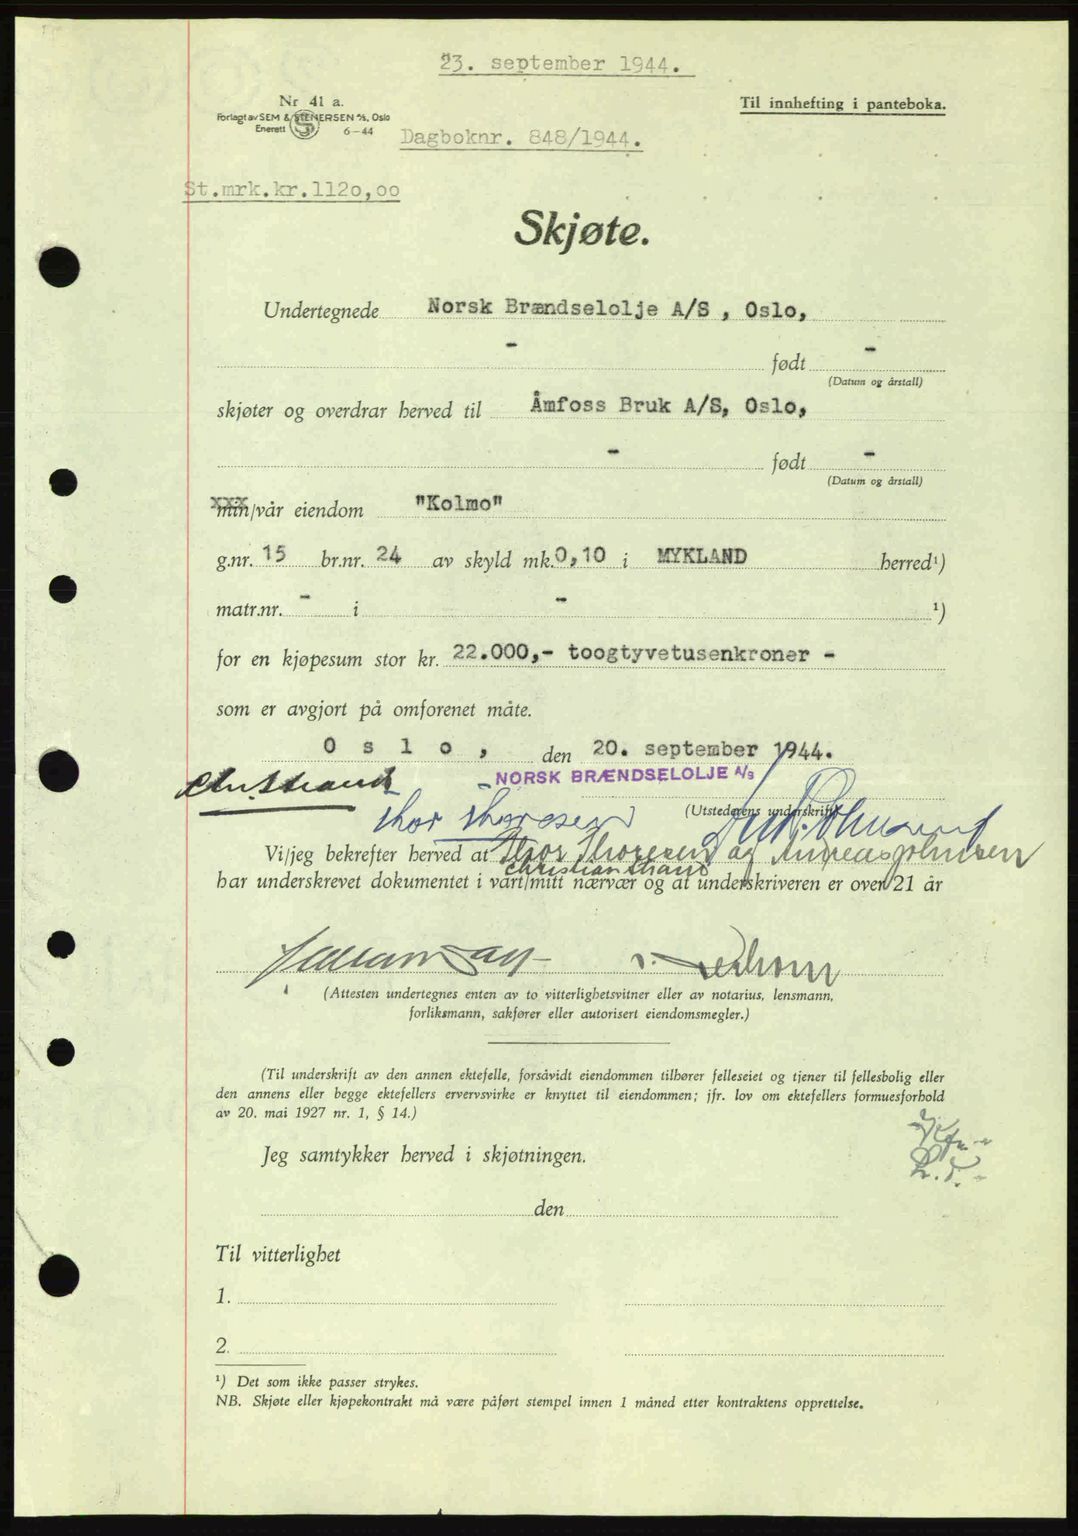 23. september 1944.
Nr 41 a.
Til innhefting i panteboka.
Forlagt av SEM & STENERSEN A/S, Oslo
Enerett S 6-44
Dagboknr. 848/1944.
St.mrk.kr.1120,00
Skjøte.
Undertegnede Norsk Brændselolje A/S , Oslo,
- født -
(Datum og årstall)
skjøter og overdrar herved til Åmfoss Bruk A/S, Oslo,
- født -
(Datum og årstall)
min/vår eiendom "Kolmo"
g.nr. 15 br.nr. 24 av skyld mk. 0,10 i MYKLAND herred¹)
matr.nr. - i - ¹)
for en kjøpesum stor kr. 22.000,- toogtyvetusenkroner -
som er avgjort på omforenet måte.
O s l o , den 20. september 1944.
NORSK BRÆNDSELOLJE A/S
Chr. Strand
Thor Thoresen
(Utstederens underskrift)
Vi/jeg bekrefter herved at Thor Thoresen og Andreas Johnsen
Christian Strand
har underskrevet dokumentet i vårt/mitt nærvær og at underskriveren er over 21 år
(Attesten undertegnes enten av to vitterlighetsvitner eller av notarius, lensmann,
forliksmann, sakfører eller autorisert eiendomsmegler.)
(Til underskrift av den annen ektefelle, forsåvidt eiendommen tilhører felleseiet og tjener til fellesbolig eller
den annens eller begge ektefellers ervervsvirke er knyttet til eiendommen; jfr. lov om ektefellers formuesforhold
av 20. mai 1927 nr. 1, § 14.)
Jeg samtykker herved i skjøtningen.
den
Til vitterlighet
1.
2.
¹) Det som ikke passer strykes.
NB. Skjøte eller kjøpekontrakt må være påført stempel innen 1 måned etter kontraktens opprettelse.